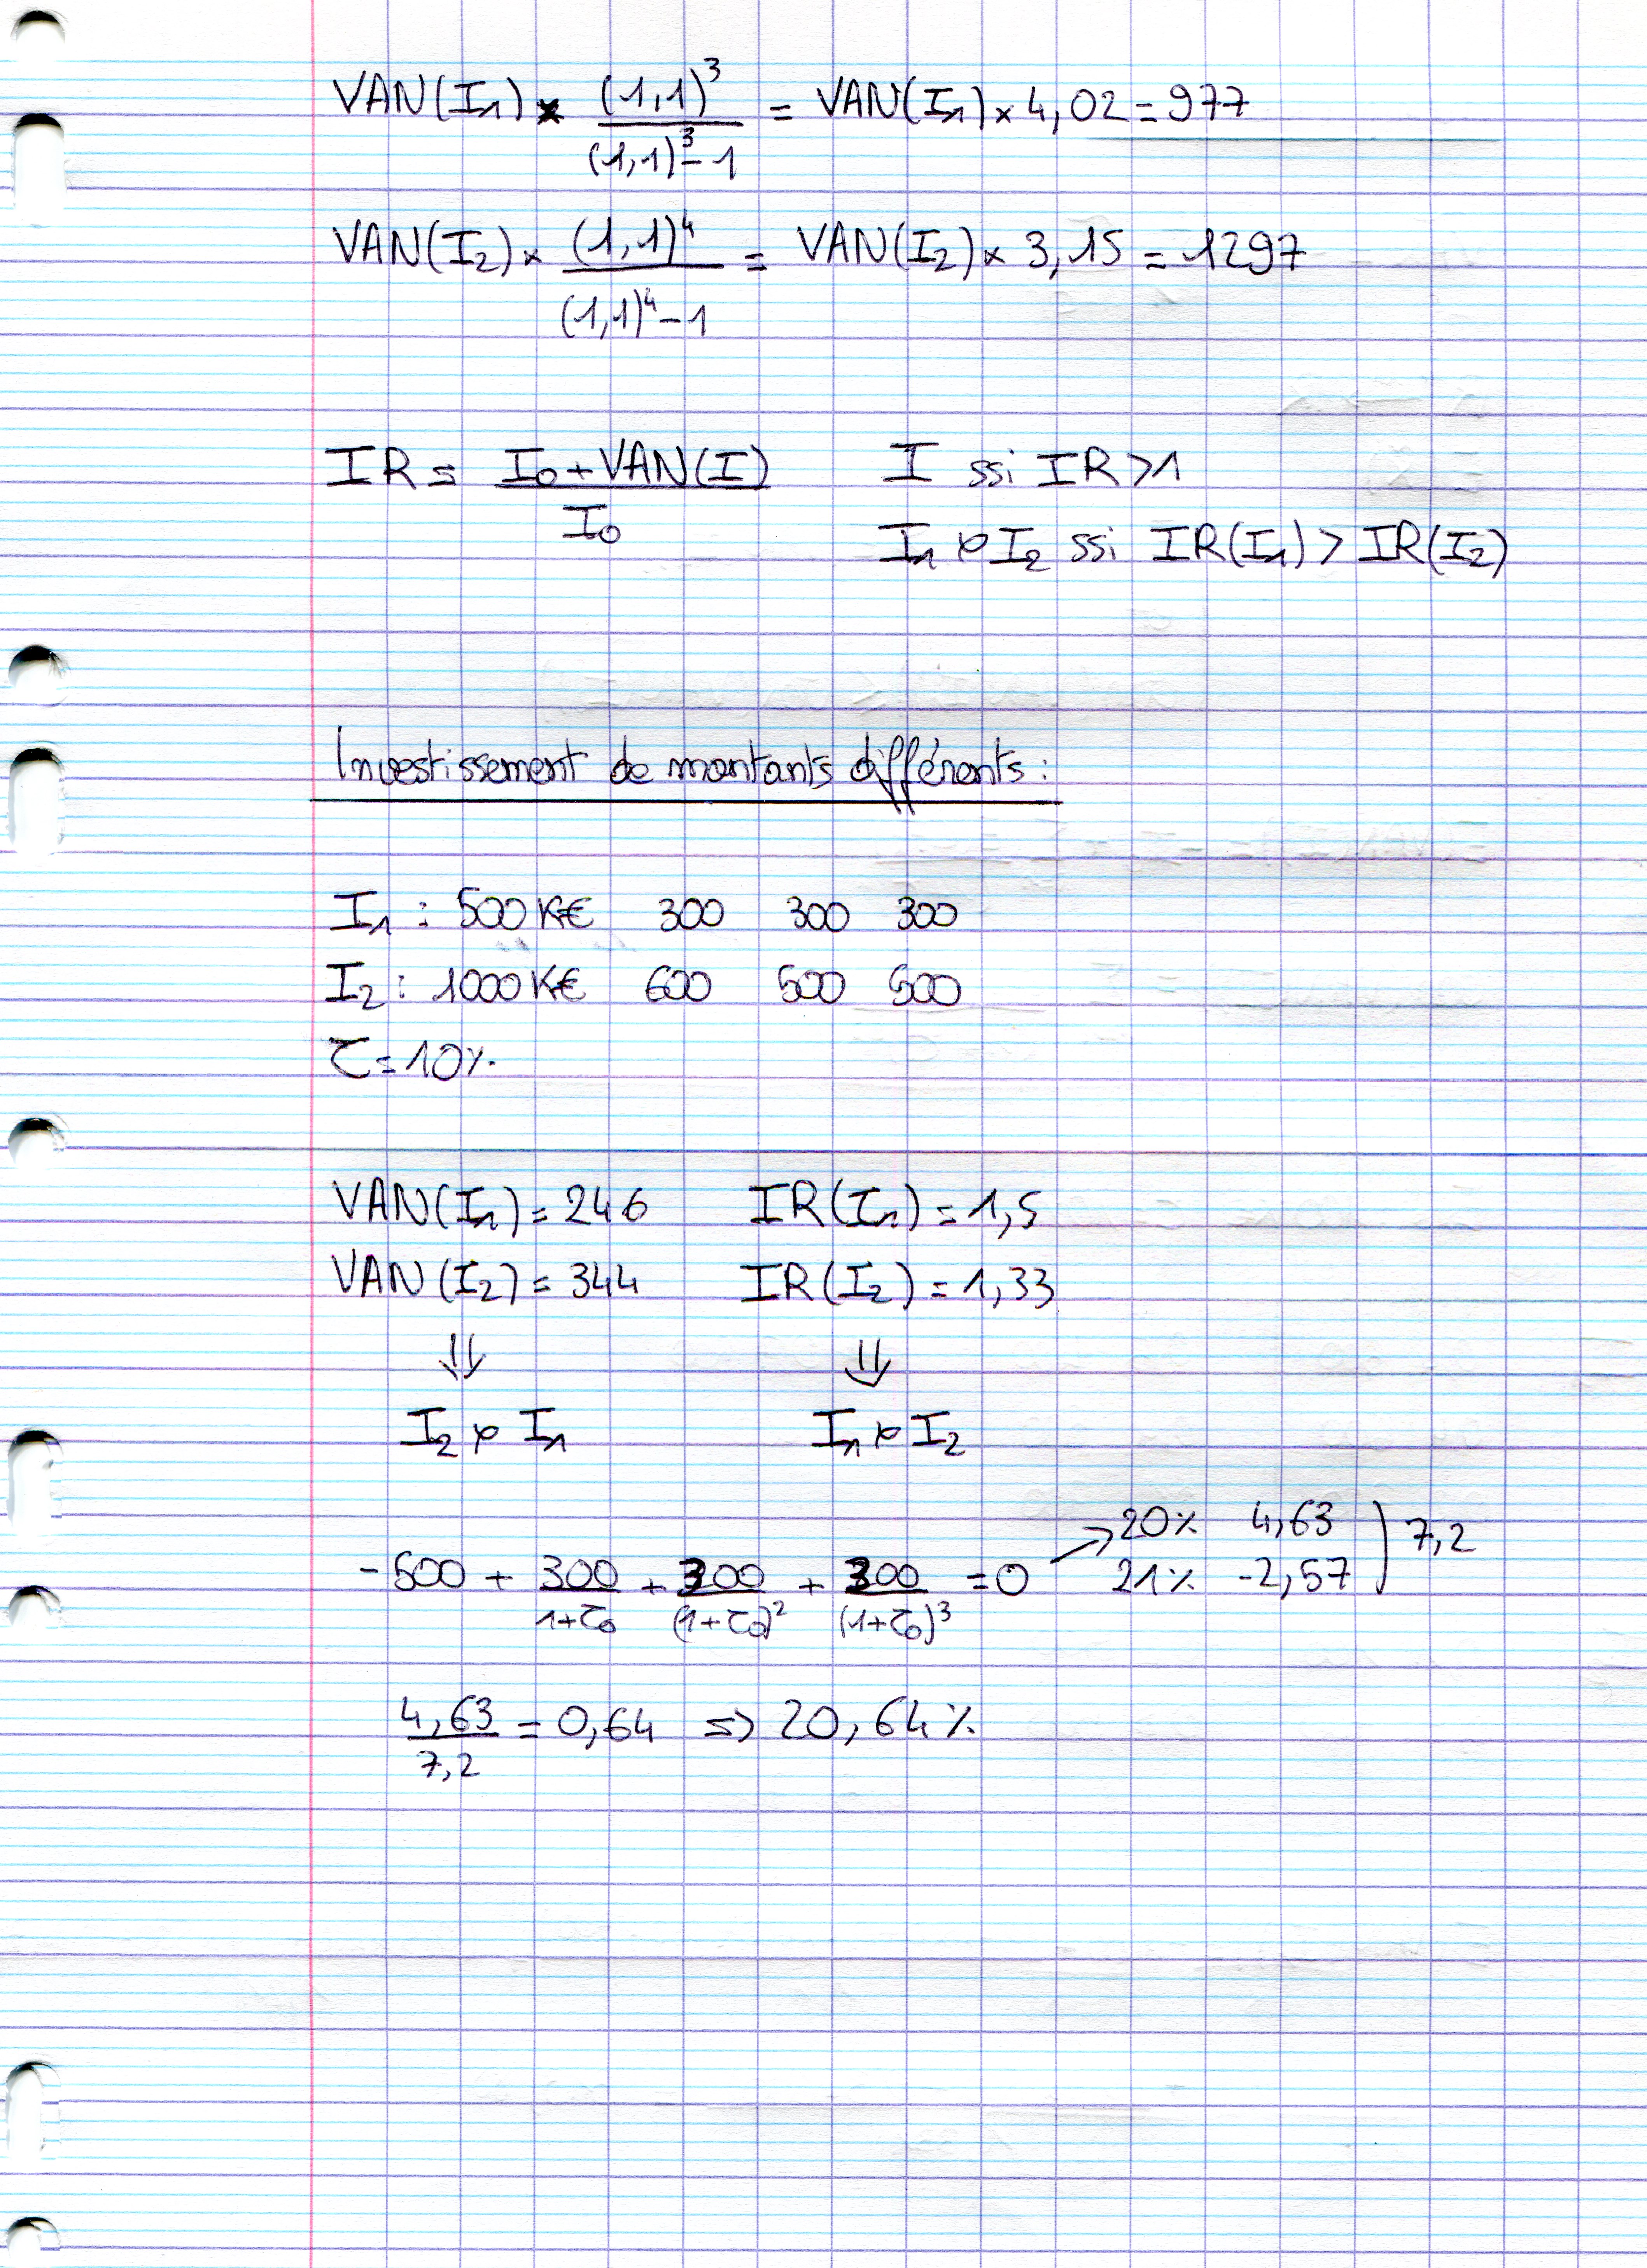 VAN(I₁) × (1,1)³ / ((1,1)³ - 1) = VAN(I₁) × 4,02 = 977
VAN(I₂) × (1,1)⁴ / ((1,1)⁴ - 1) = VAN(I₂) × 3,15 = 1297
IR = (I₀ + VAN(I)) / I₀    I ssi IR > 1
I₁ ≻ I₂ ssi IR(I₁) > IR(I₂)
Investissement de montants différents :
I₁ : 500 K€ 300 300 300
I₂ : 1000 K€ 600 500 500
τ = 10%
VAN(I₁) = 246    IR(I₁) = 1,5
VAN(I₂) = 344    IR(I₂) = 1,33
⇓    ⇓
I₂ ≻ I₁    I₁ ≻ I₂
-500 + 300/(1+τ₀) + 300/(1+τ₀)² + 300/(1+τ₀)³ = 0 → 20% 4,63 ) 7,2
21% -2,57
4,63 / 7,2 = 0,64 ⇒ 20,64%